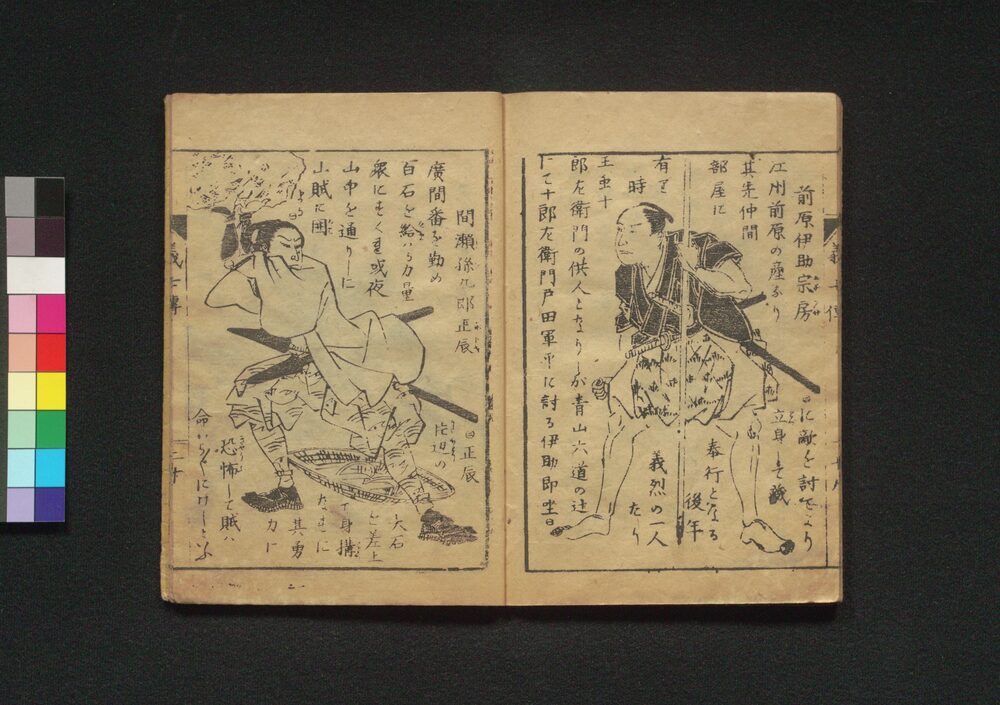 前原伊助宗房
江州前原の産なり
其先仲間
部屋に
有て
時
王垂十
郎左衛門の供人となりしが青山六道の辻
にて十郎左衛門戸田軍平に討る伊助即坐
に敵を討てより
立身して
奉行となる
後年
義烈の一人
たり
間瀬孫九郎正辰
廣間番を勤め
百石を給ハる力量
衆にすぐ 或夜
山中を通りしに
山賊に囲
まる
正辰
傍辺の
大石
と差上
て身搆
なすに
其勇
力に
恐怖して賊ハ
命からくにけしとぞ
義士傳